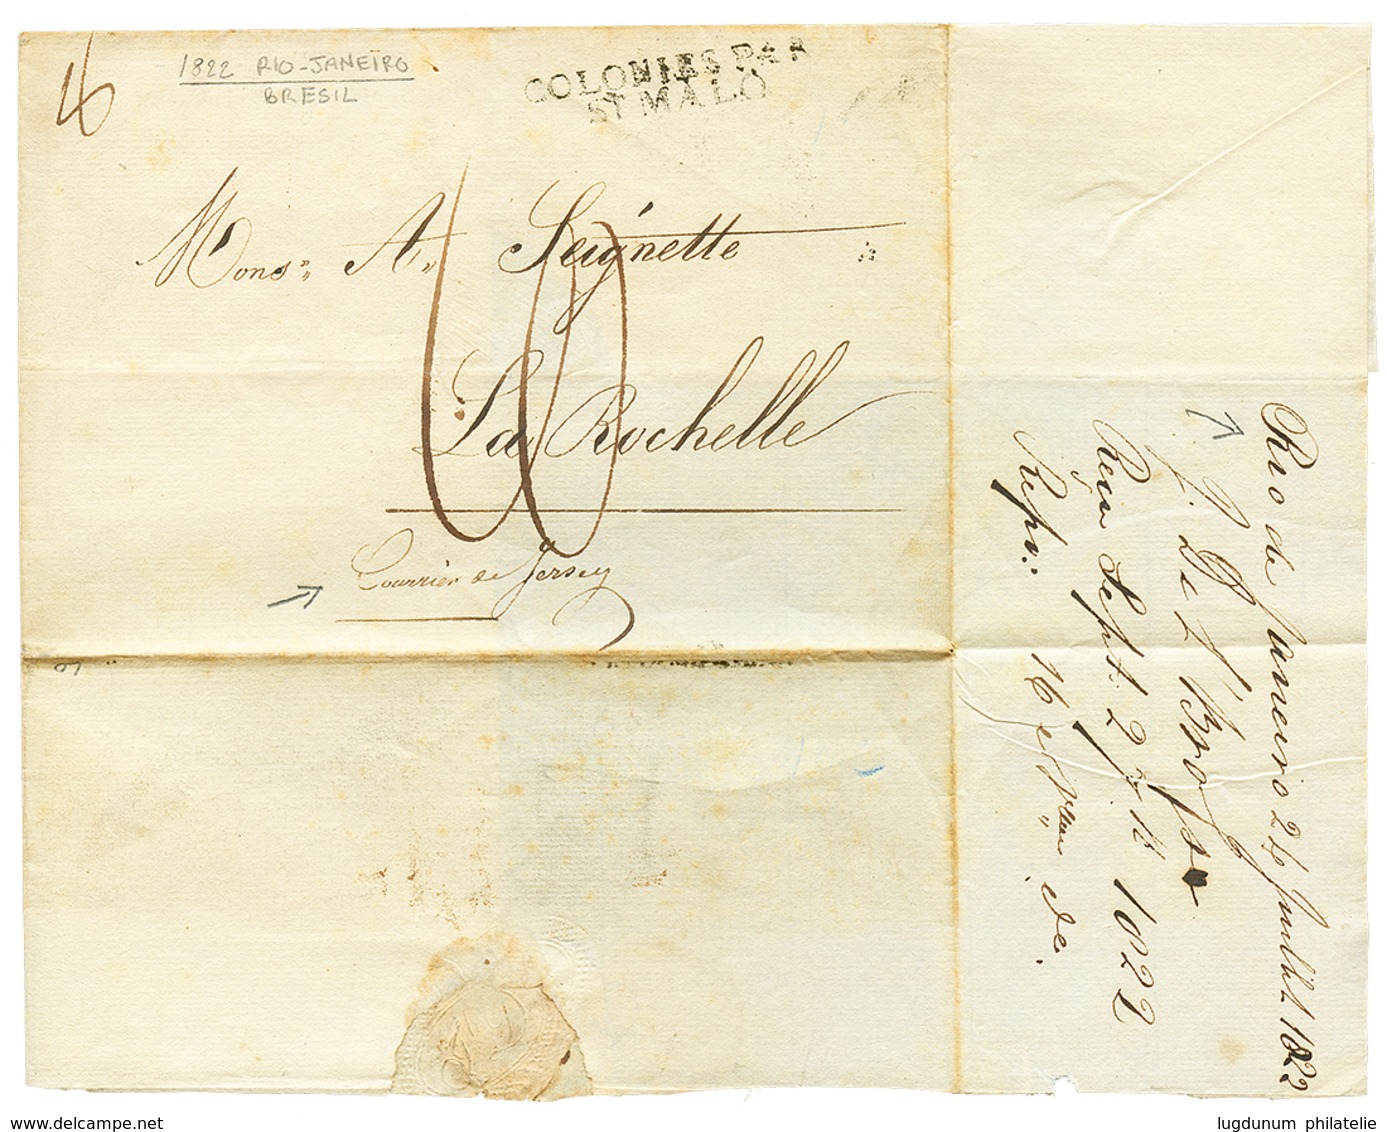 1822 RIO-JANEIRO
BRESIL
COLONIES PAR
ST MALO
Mons.r A. Seignette
La Rochelle
Courrier de Jersey
Rio de Janeiro 24 Juillet 1822
J. De L'Brosse
Reçu Sept. 27 1822
Rep.
16
de.
www.delcampe.net
lugdunum philatelie